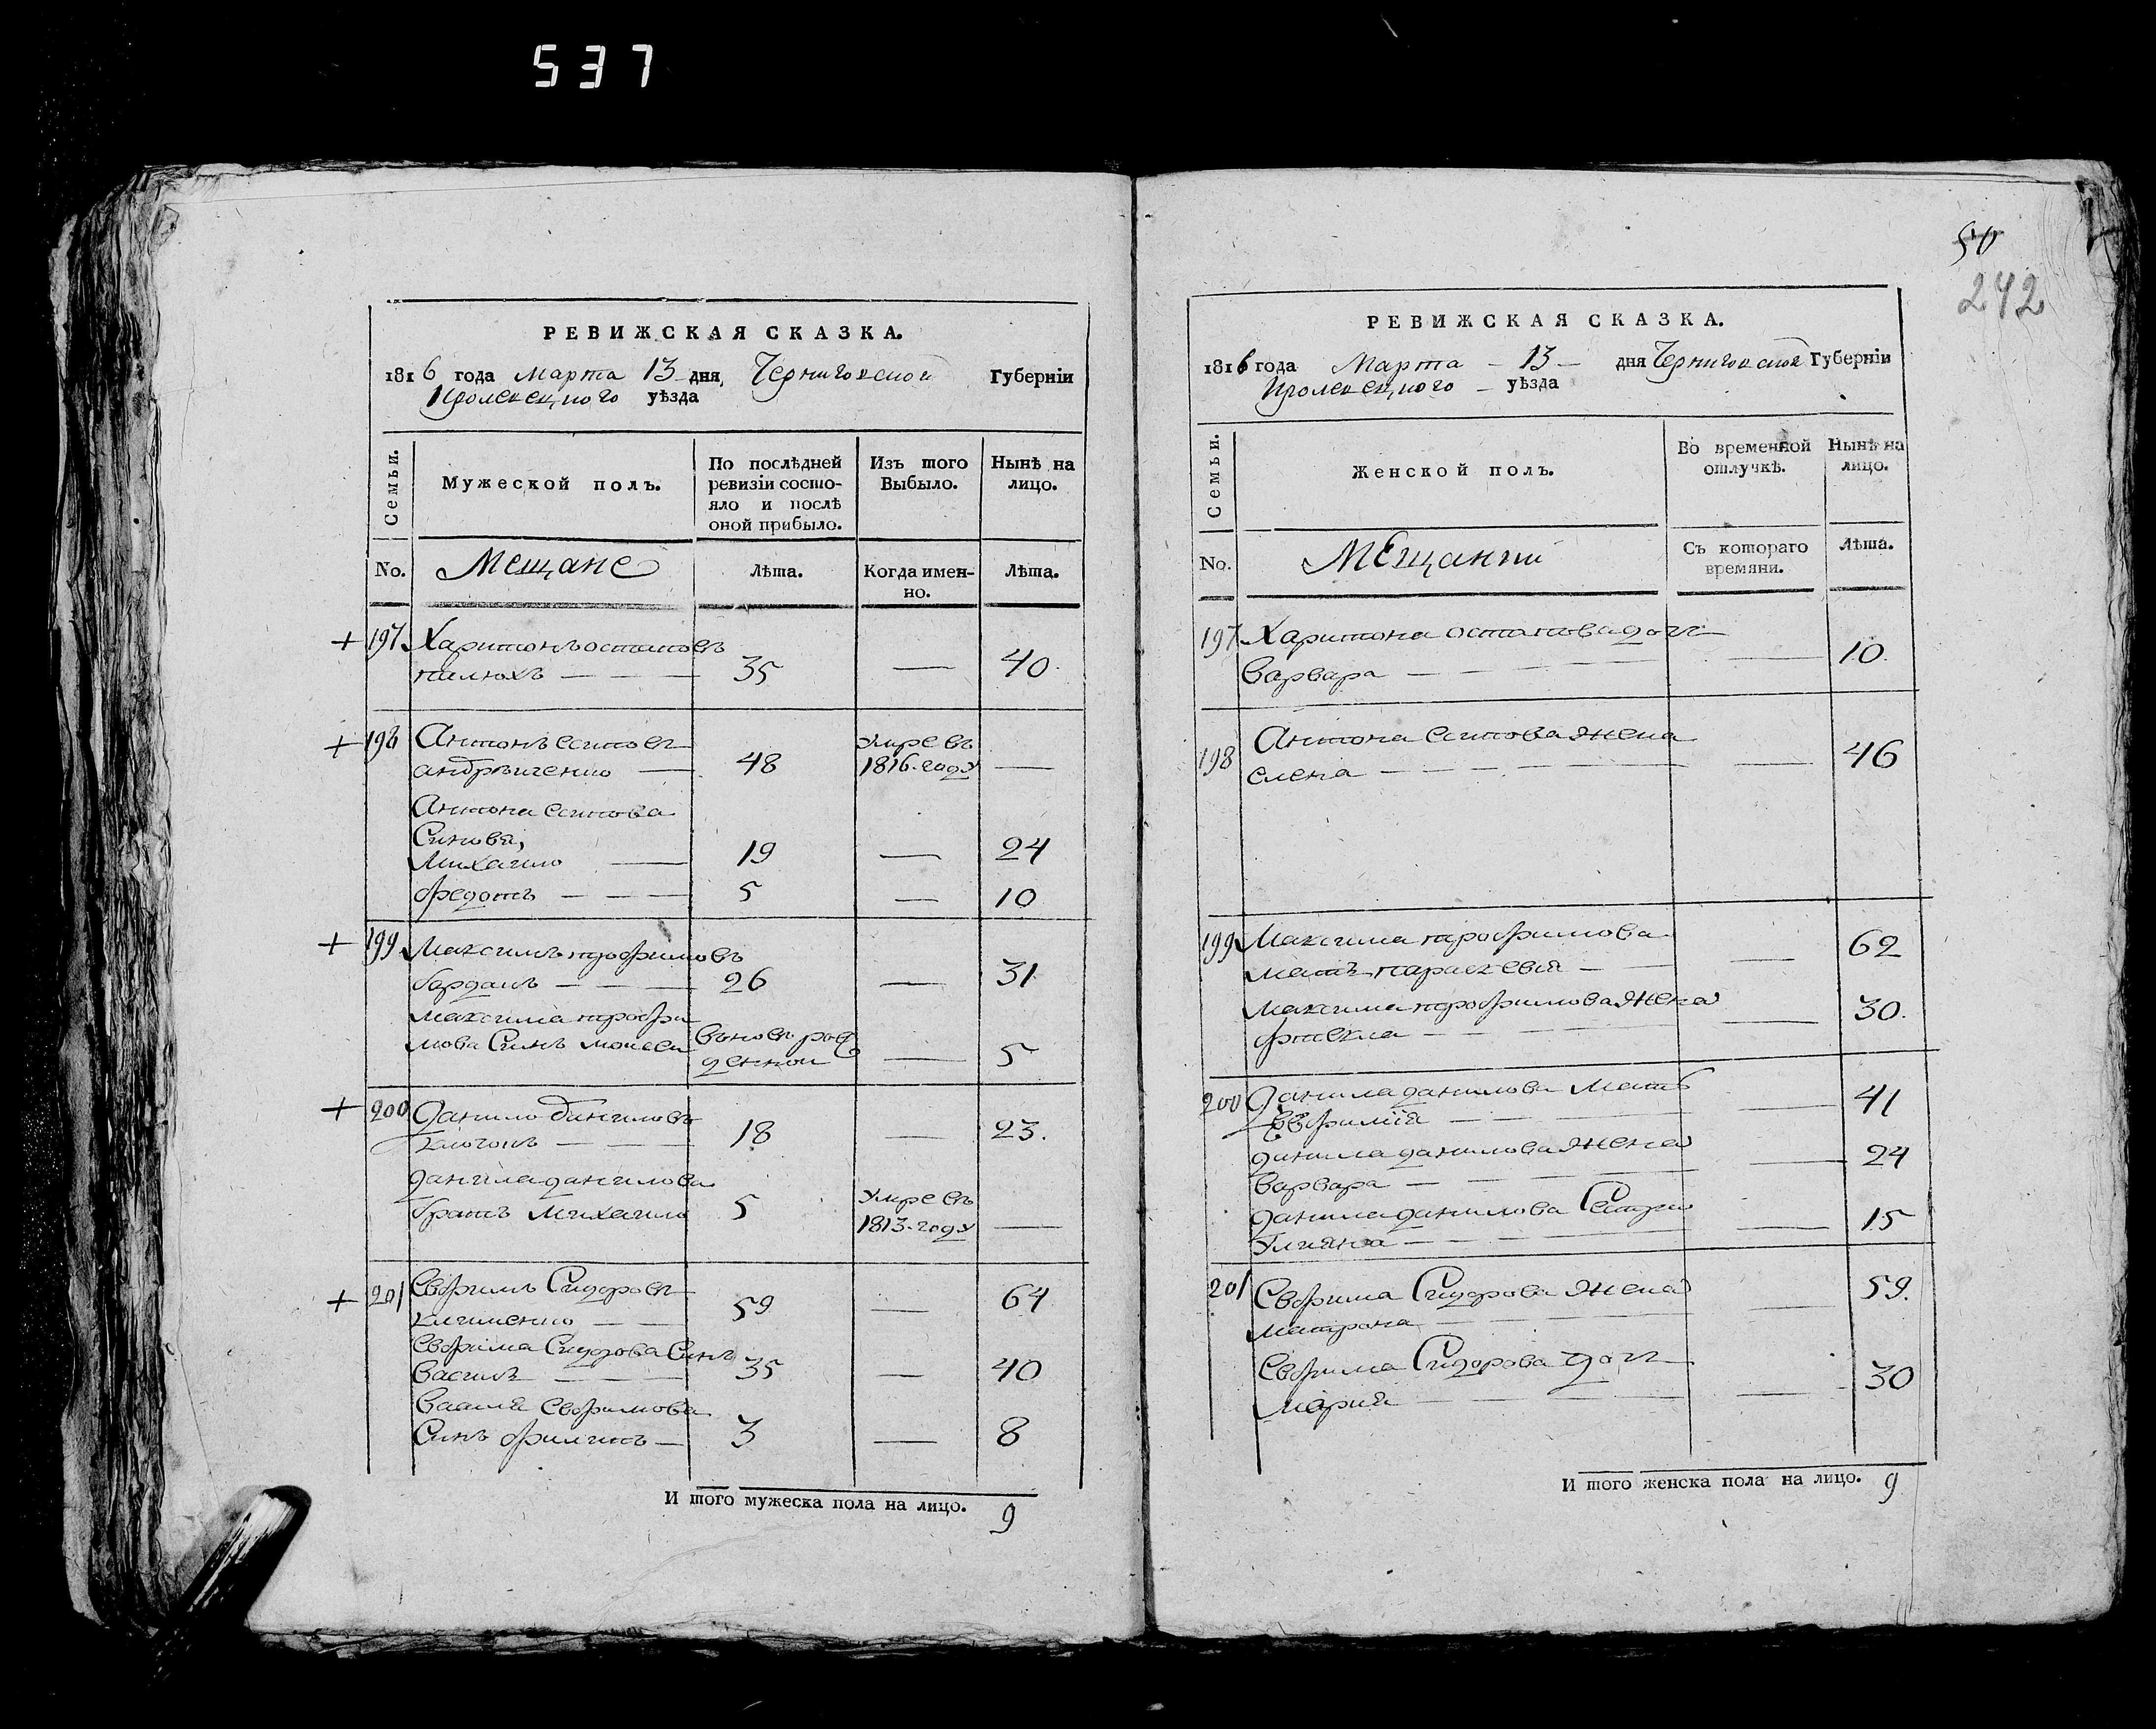 537
50
242
РЕВИЖСКАЯ СКАЗКА.
1816 года Марта 13 дня, Черниговской Губерніи
Кролевецкого уѣзда
Семьи.
Мужеской полъ.
По послѣдней ревизіи состо-
яло и послѣ
оной прибыло.
Изъ того
Выбыло.
Нынѣ на
лицо.
No.
Мещане
Лѣта.
Когда имен-
но.
Лѣта.
+ 197 Харитонъ остаповъ
35 — 40.
+ 198 Антонъ есиповъ
андрѣиченко — 48 — умре въ 1816. году —
Антона есипова
Синовя,
Михаило — 19 — 24
Федотъ — — — 5 — 10
+ 199 Максимъ трофимовъ
бардакъ — — — 26 — 31
Максима трофи
мова Синъ моисеи вновь рож
денной — 5
+ 200 Данило даниловъ
18 — 23.
Данила данилова
братъ Михаило 5 умре въ
1813. году —
+ 201 Евфимъ Сидоровъ
клименко — — 59 — 64
Евфима Сидорова Синъ
василь — — 35 — 40
василя Евфимова
Синъ филипъ — 3 — 8
И того мужеска пола на лицо. 9
РЕВИЖСКАЯ СКАЗКА.
1816 года Марта – 13 – дня Черниговской Губерніи
Кролевецкого – уѣзда
Семьи.
Женской полъ.
Во временной
отлучкѣ.
Нынѣ на
лицо.
No.
Мещанки
Съ котораго
времяни.
Лѣта.
197 Харитона остапова дочь
варвара — — — 10.
198 Антона есипова жена
елена — — — 46
199 Максима трофимова
мать параскевия — — 62
Максима трофимова жена
фтекла — — 30.
200 Данила данилова Мать
Евфимія — — 41
данила данилова жена
варвара — — — 24
данила данилова Сестра
Улияна — — — 15
201 Евфима Сидорова жена
матрона — — 59.
Евфима Сидорова дочь
Мария — — 30
И того женска пола на лицо. 9